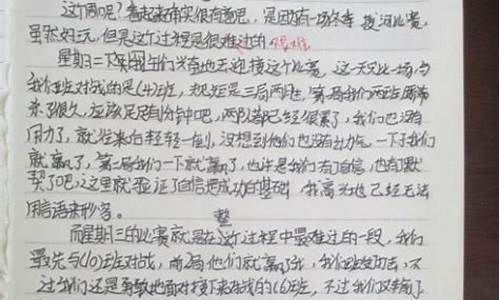 这个周吧?看起来确实很有意吧,是因为有一场冬季拔河比赛,
虽然好玩,但是这个过程是很难过的 艰难
星期二下午同学们兴奋地去迎接这个比赛,这一天又比一场与
我们班对战的是(4)班,规矩是三局两胜,第一局我们两班
来了很久,应该足足有1分钟吧,两队都已经很累了,我们也没有
用力了,就往来自轻轻一创,没想到他们也没有出力气,一下子我们
就赢了,第二局我们一下就赢了,也许是我们有了自信,也有了默
契了吧,这里就验证了自信把成功的基础,我高兴地已经无法
用言语来形容。 整
而星期三的比赛就是在这个过程中最难过的一段,我们
最先与(10)班对战,前2局他们就赢了我,我们班,不
过我们还是勇敢地面对接下来对战的(6)班,不过我们又输了